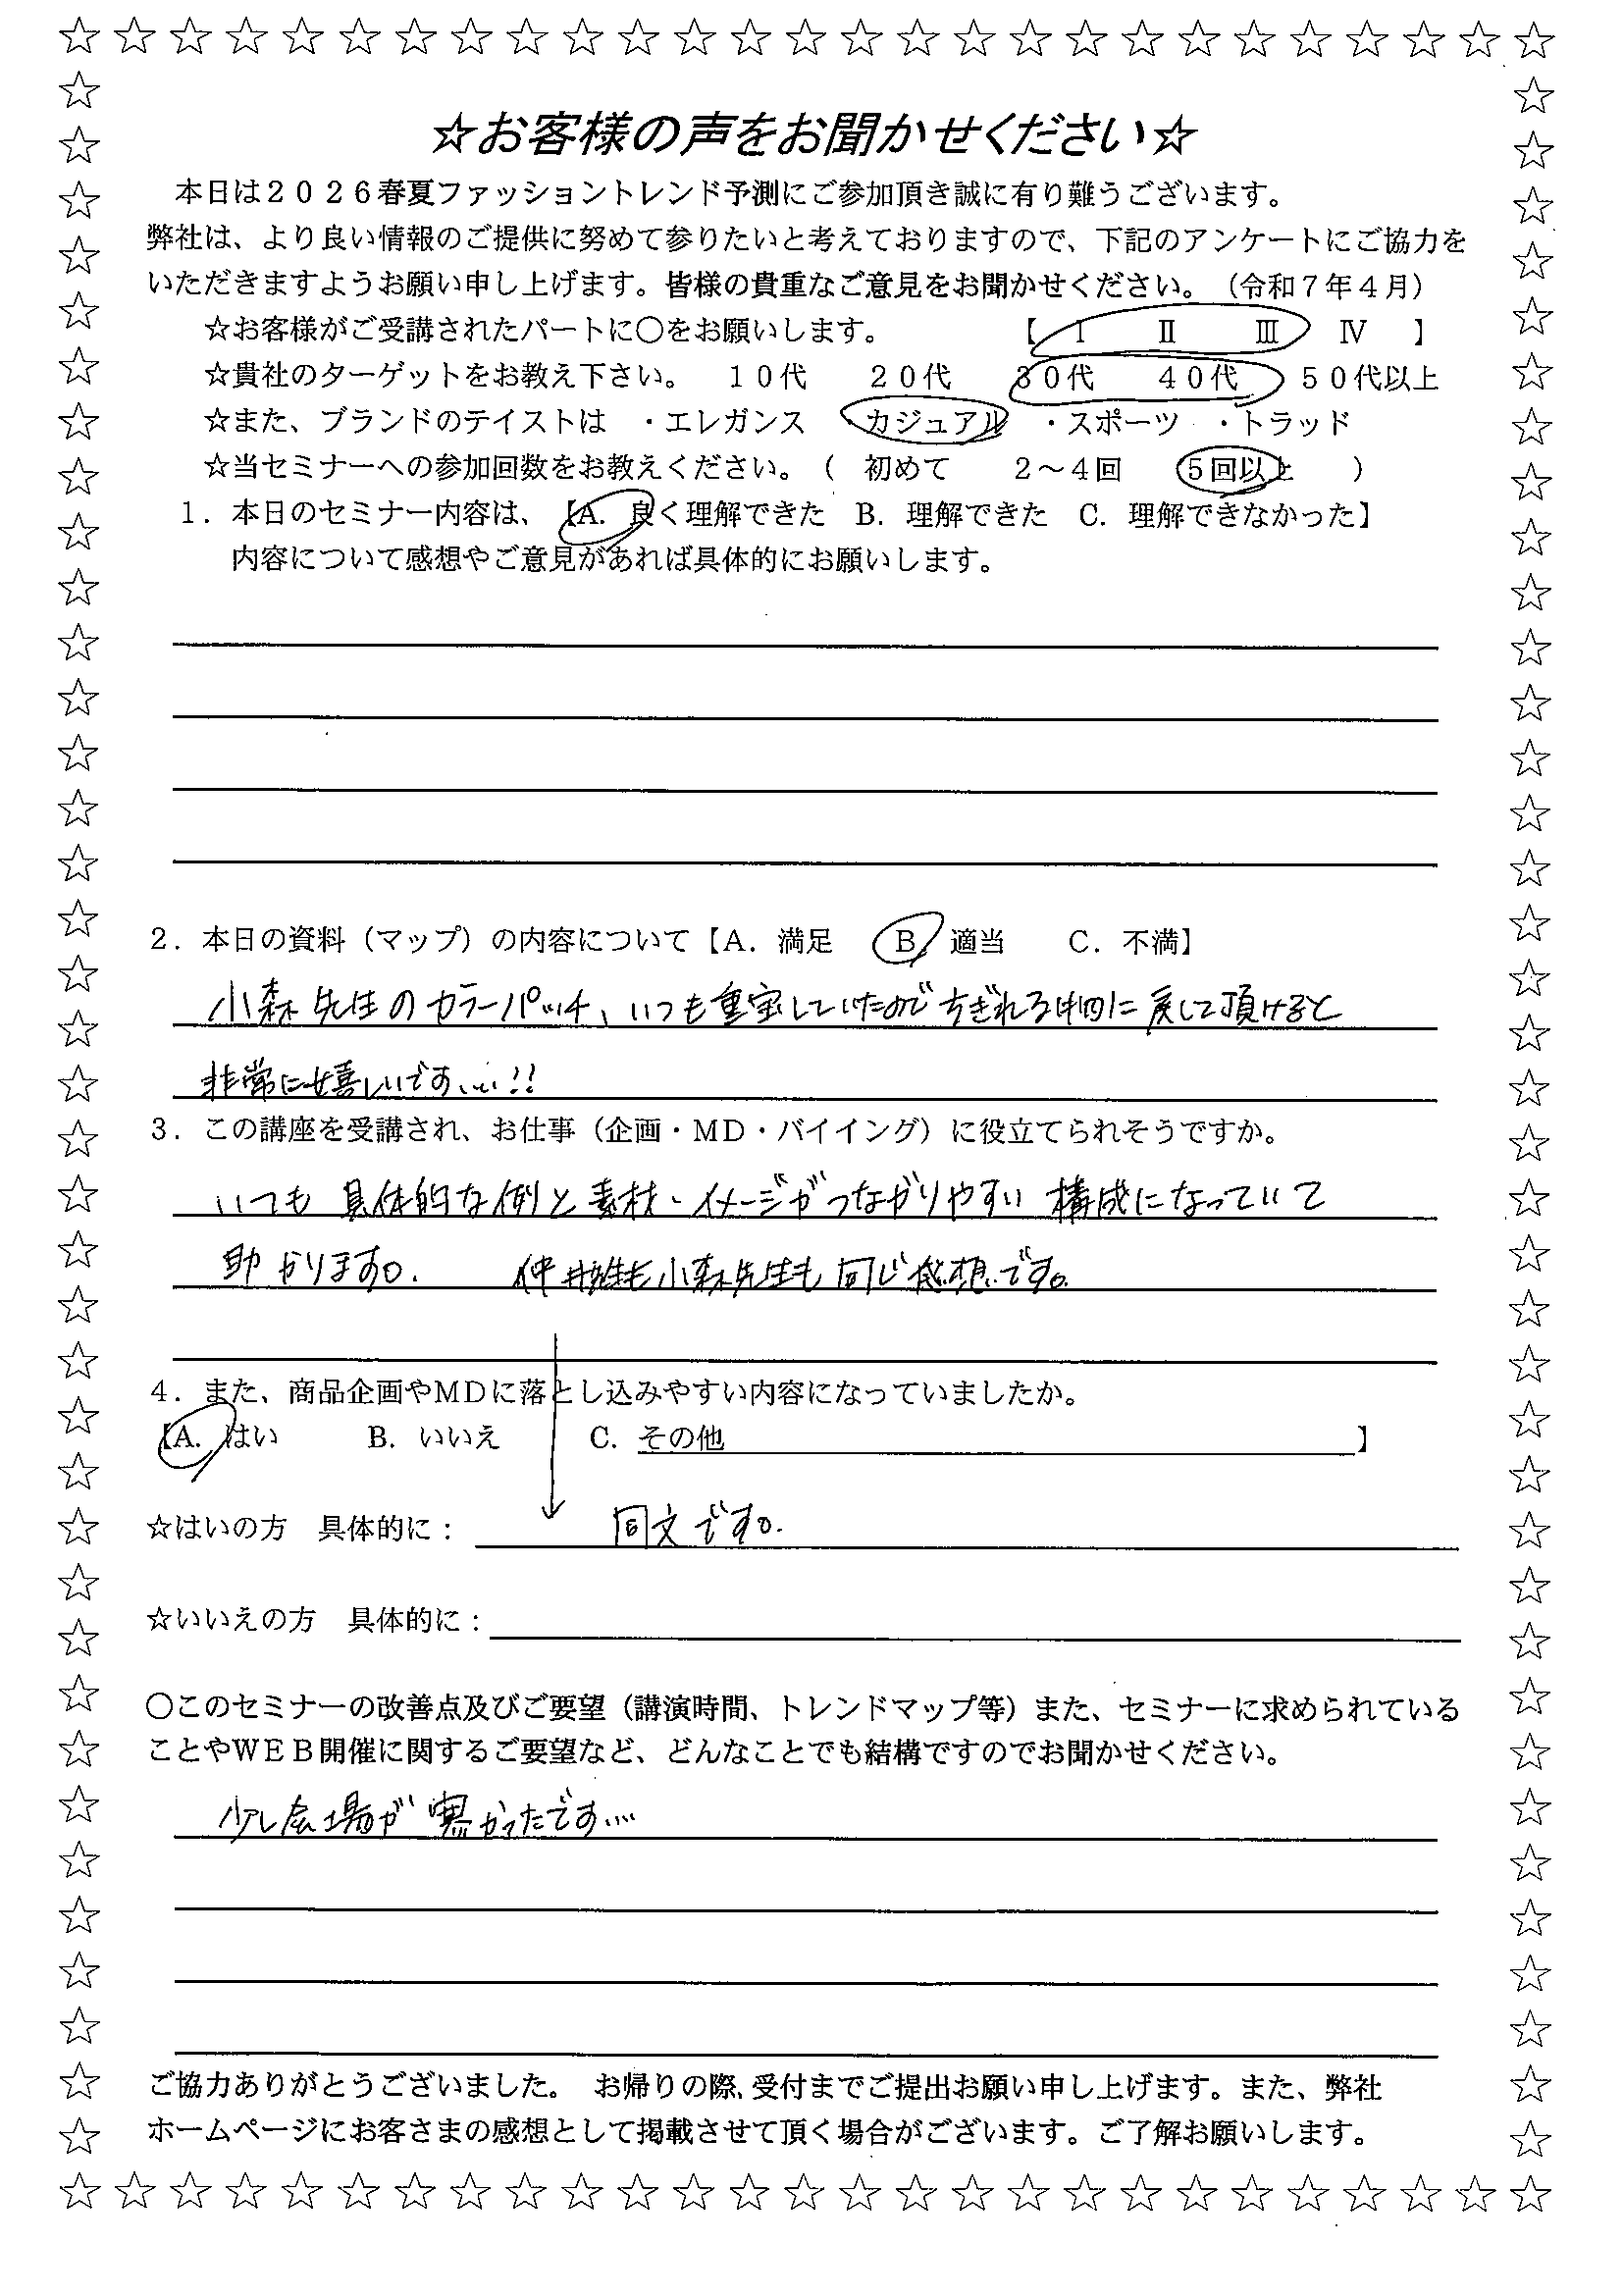 ☆お客様の声をお聞かせください☆
本日は２０２６春夏ファッショントレンド予測にご参加頂き誠に有り難うございます。
弊社は、より良い情報のご提供に努めて参りたいと考えておりますので、下記のアンケートにご協力を
いただきますようお願い申し上げます。皆様の貴重なご意見をお聞かせください。（令和７年４月）
☆お客様がご受講されたパートに〇をお願いします。　【　Ⅰ　Ⅱ　Ⅲ　Ⅳ　】
☆貴社のターゲットをお教え下さい。　１０代　２０代　３０代　４０代　５０代以上
☆また、ブランドのテイストは　・エレガンス　・カジュアル　・スポーツ　・トラッド
☆当セミナーへの参加回数をお教えください。（　初めて　２～４回　５回以上　）
１．本日のセミナー内容は、【A．良く理解できた　B．理解できた　C．理解できなかった】
内容について感想やご意見があれば具体的にお願いします。
２．本日の資料（マップ）の内容について【A．満足　B．適当　C．不満】
小森先生のカラーパッチ、いつも重宝していたのでちぎれる仕様に戻して頂けると
非常に嬉しいです…!!
３．この講座を受講され、お仕事（企画・MD・バイイング）に役立てられそうですか。
いつも具体的な例と素材・イメージがつながりやすい構成になっていて
助かります。　先生も小森先生も同じ感想です。
４．また、商品企画やMDに落とし込みやすい内容になっていましたか。
【A．はい　B．いいえ　C．その他　】
☆はいの方　具体的に：　同文です。
☆いいえの方　具体的に：
〇このセミナーの改善点及びご要望（講演時間、トレンドマップ等）また、セミナーに求められている
ことやＷＥＢ開催に関するご要望など、どんなことでも結構ですのでお聞かせください。
少し会場が寒かったです…
ご協力ありがとうございました。　お帰りの際、受付までご提出お願い申し上げます。また、弊社
ホームページにお客さまの感想として掲載させて頂く場合がございます。ご了解お願いします。